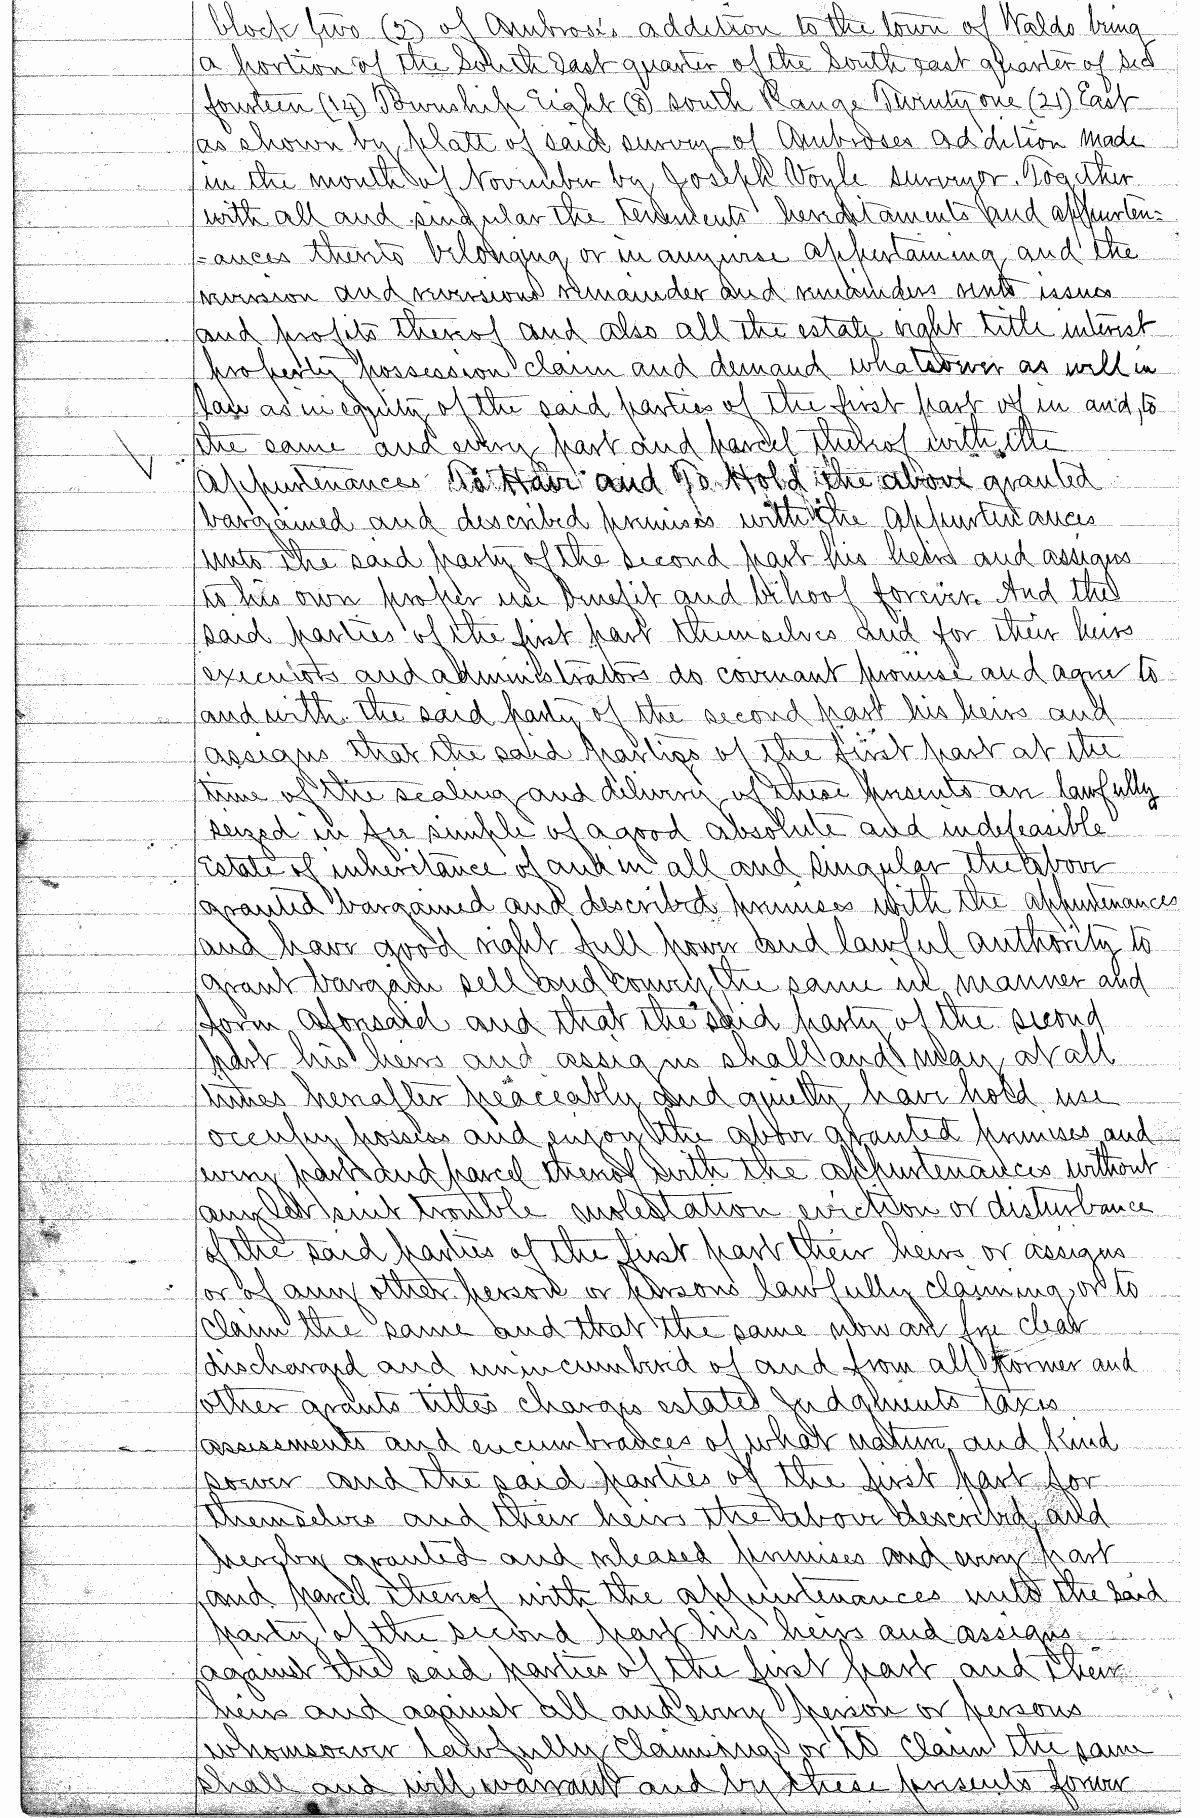 block two (2) of Ambroses addition to the town of Waldo being
a portion of the South East quarter of the South east quarter of Sec
fourteen (14) Township Eight (8) south Range Twenty one (21) East
as shown by platt of said survey of Ambroses addition made
in the month of November by Joseph Voyle surveyor. Together
with all and singular the tenements hereditaments and appurten=
=ances thereto belonging or in anywise appertaining and the
revission and reversions remainder and remainders rents issues
and profits thereof and also all the estate right title interest
property possession claim and demand whatsoever as well in
law as in equity of the said parties of the first part of in and to
the same and every part and parcel thereof with the
appurtenances To Have and To Hold the above granted
bargained and described premises with the appurtenances
unto the said party of the second part his heirs and assigns
to his own proper use benefit and behoof forever. And the
said parties of the first part themselves and for their heirs
executors and administrators do covenant promise and agree to
and with the said party of the second part his heirs and
assigns that the said parties of the first part at the
time of the sealing and delivery of these presents are lawfully
seized in fee simple of a good absolute and indefeasible
Estate of inheritance of and in all and singular the above
granted bargained and described premises with the appurtenances
and have good right full power and lawful authority to
grant bargain sell and convey the same in manner and
form aforesaid and that the said party of the second
part his heirs and assigns shall and may at all
times hereafter peaceably and quietly have hold use
occupy possess and enjoy the above granted premises and
every part and parcel thereof with the appurtenances without
any let suit trouble molestation eviction or disturbance
of the said parties of the first part their heirs or assigns
or of any other person or persons lawfully claiming or to
claim the same and that the same now are free clear
discharged and unincumbered of and from all former and
other grants titles charges estates Judgments taxes
assessments and encumbrances of what nature and kind
soever and the said parties of the first part for
themselves and their heirs the above described and
hereby granted and released premises and every part
and parcel thereof with the appurtenances unto the said
party of the second part his heirs and assigns
against the said parties of the first part and their
heirs and against all and every person or persons
whomsoever lawfully claiming or to claim the same
shall and will warrant and by these presents forever